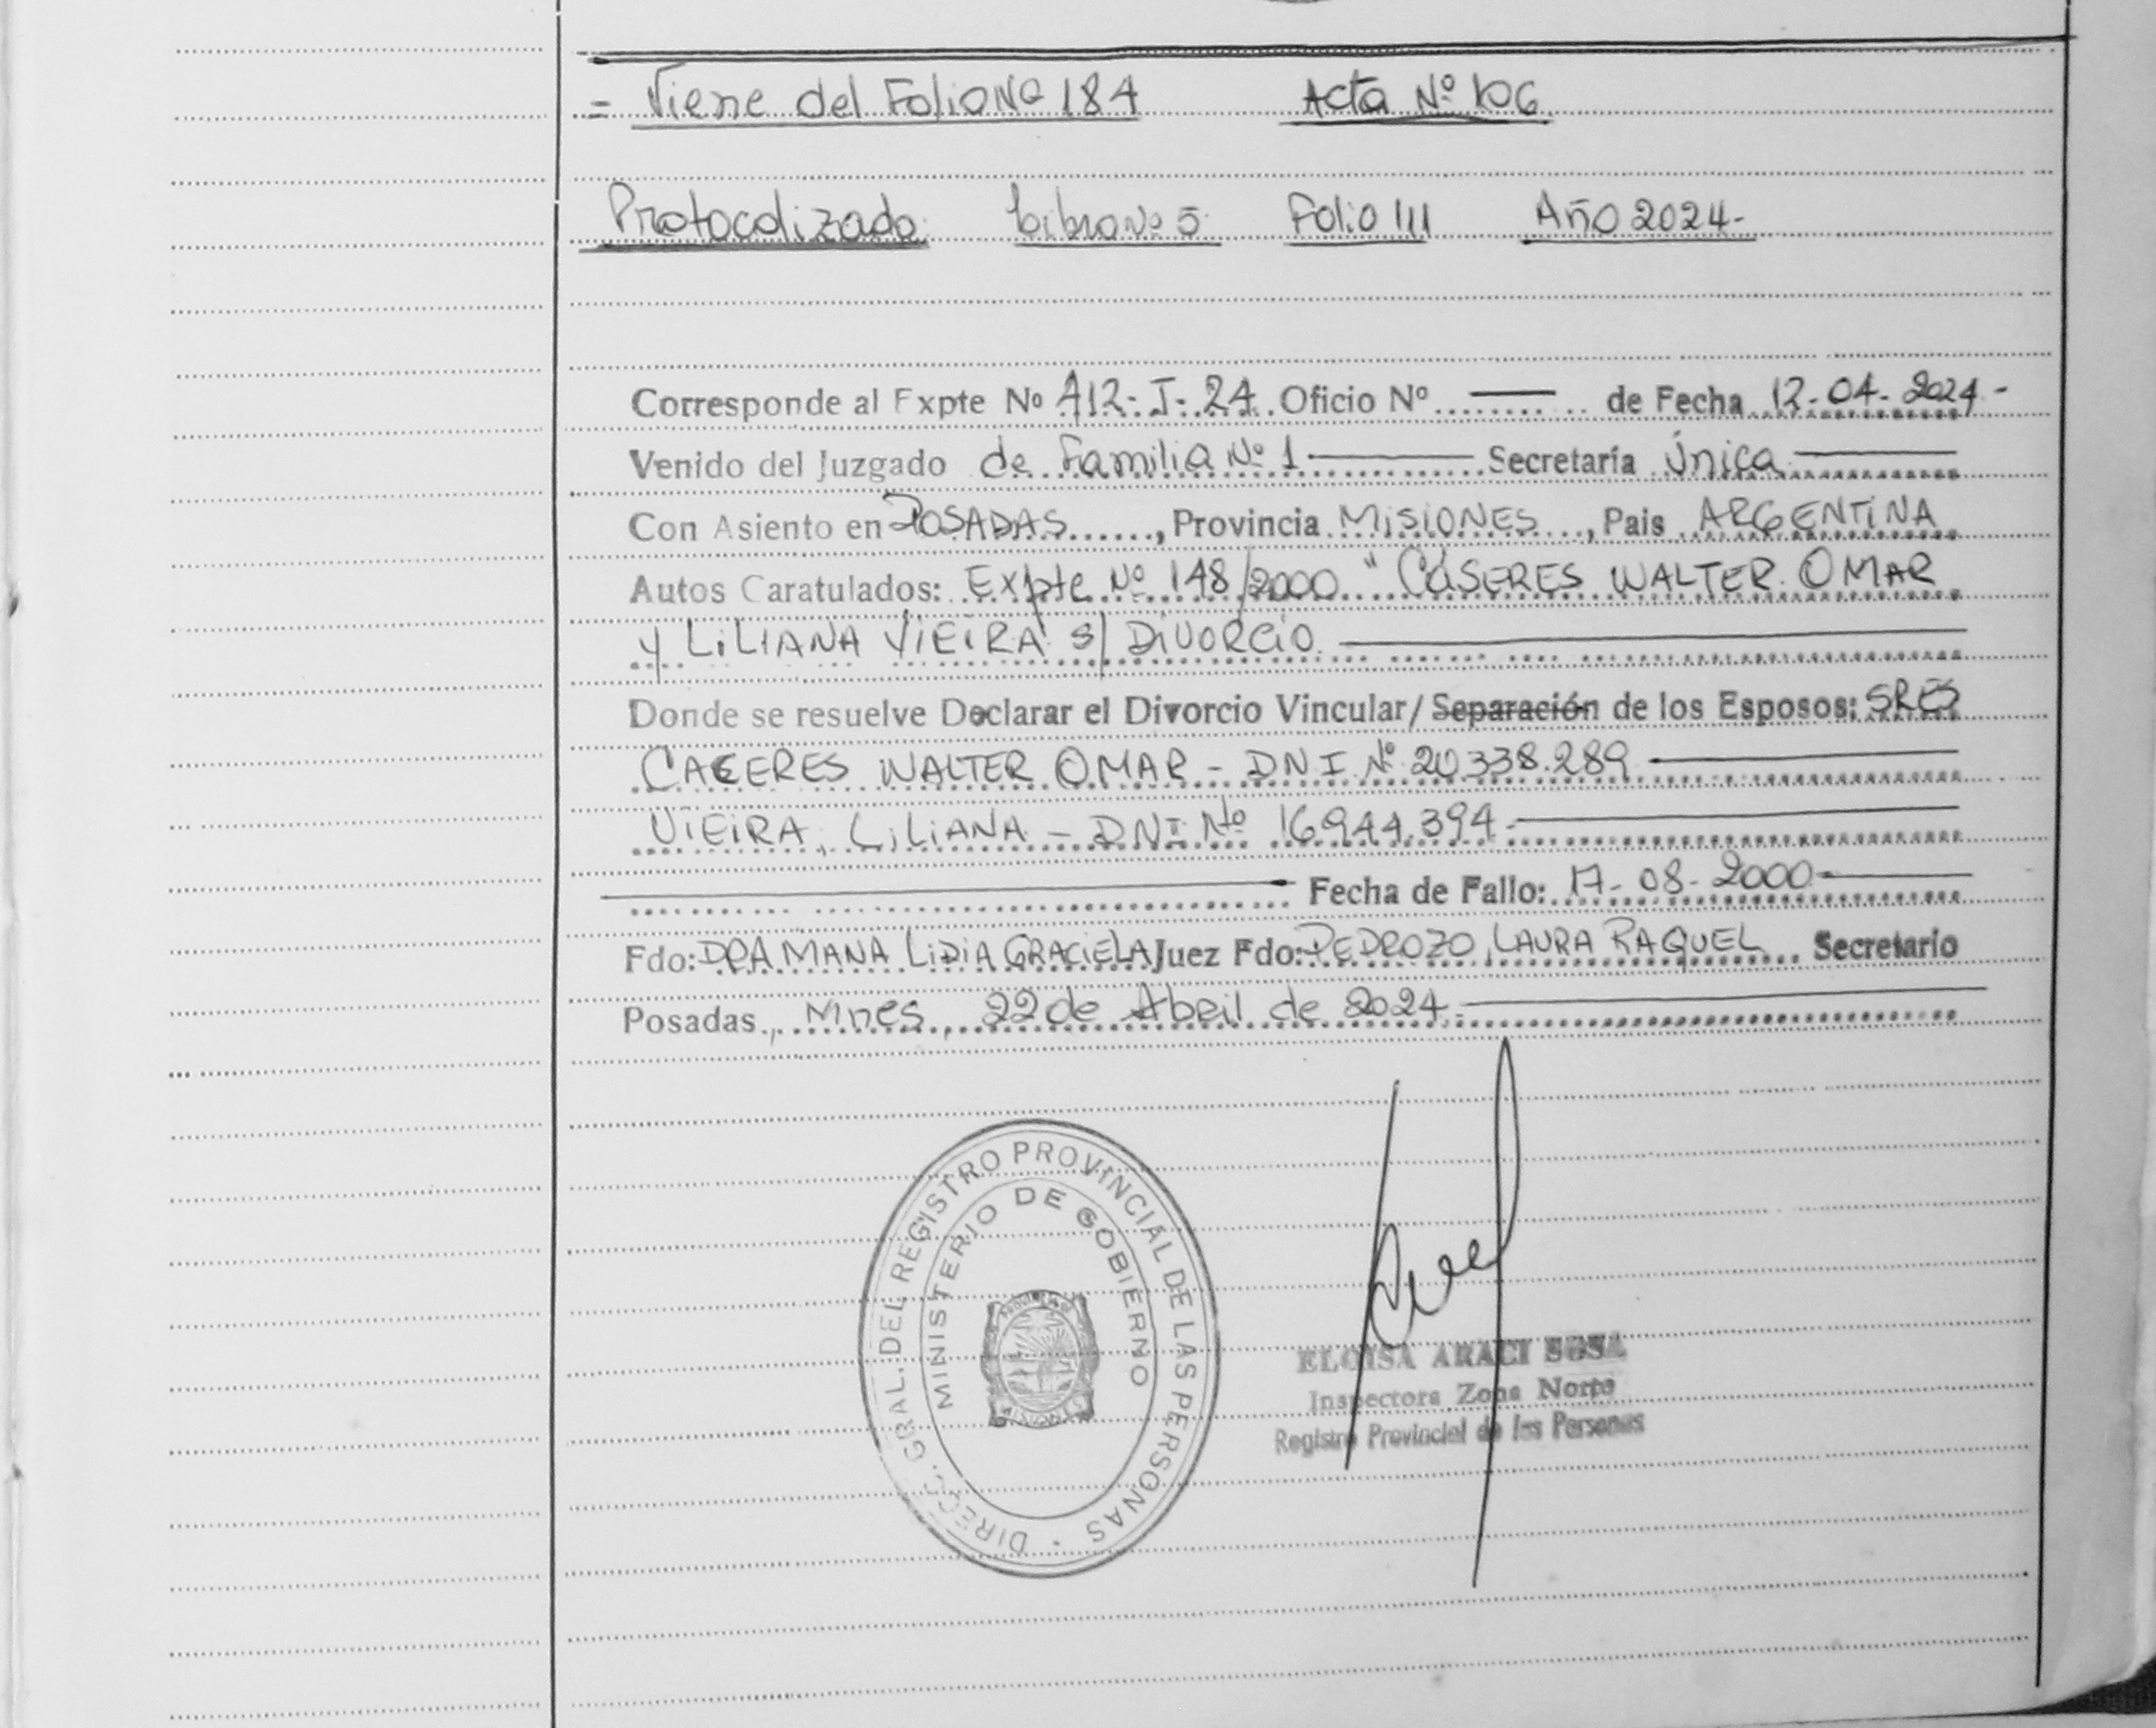 = Viene del Folio Nº 184 Acta Nº 106
Protocolizado Libro Nº 5 Folio 111 Año 2024-
Corresponde al Expte Nº 412-J-24. Oficio Nº ——— de Fecha 12-04-2024-
Venido del Juzgado de Familia Nº 1 ——— Secretaría Única ———
Con Asiento en POSADAS......, Provincia MISIONES..., Pais ARGENTINA
Autos Caratulados: Expte Nº 148/2000 "CÁSERES WALTER OMAR
y LILIANA VIEIRA s/ DIVORCIO. ———
Donde se resuelve Declarar el Divorcio Vincular/ Separación de los Esposos: SRES
CACERES WALTER OMAR - DNI Nº 20.338.289 ———
VIEIRA, LILIANA - DNI Nº 16.944.394- ———
——— Fecha de Fallo: 17-08-2000- ———
Fdo: DRA MANA LIDIA GRACIELA Juez Fdo: PEDROZO, LAURA RAQUEL... Secretario
Posadas, Mnes, 22 de Abril de 2024. ———
DIRECC. GRAL. DEL REGISTRO PROVINCIAL DE LAS PERSONAS
MINISTERIO DE GOBIERNO
MISIONES
ELOISA ARACI SOSA
Inspectora Zona Norte
Registro Provincial de las Personas